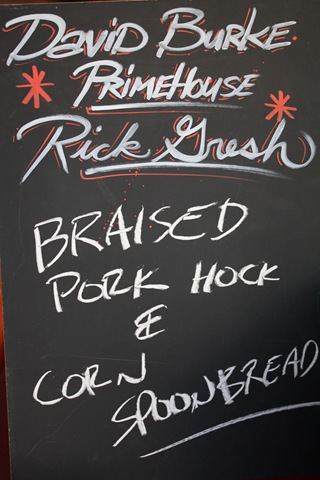 David Burke
PrimeHouse
Rick Gresh
BRAISED
PORK HOCK
&
CORN
SPOONBREAD